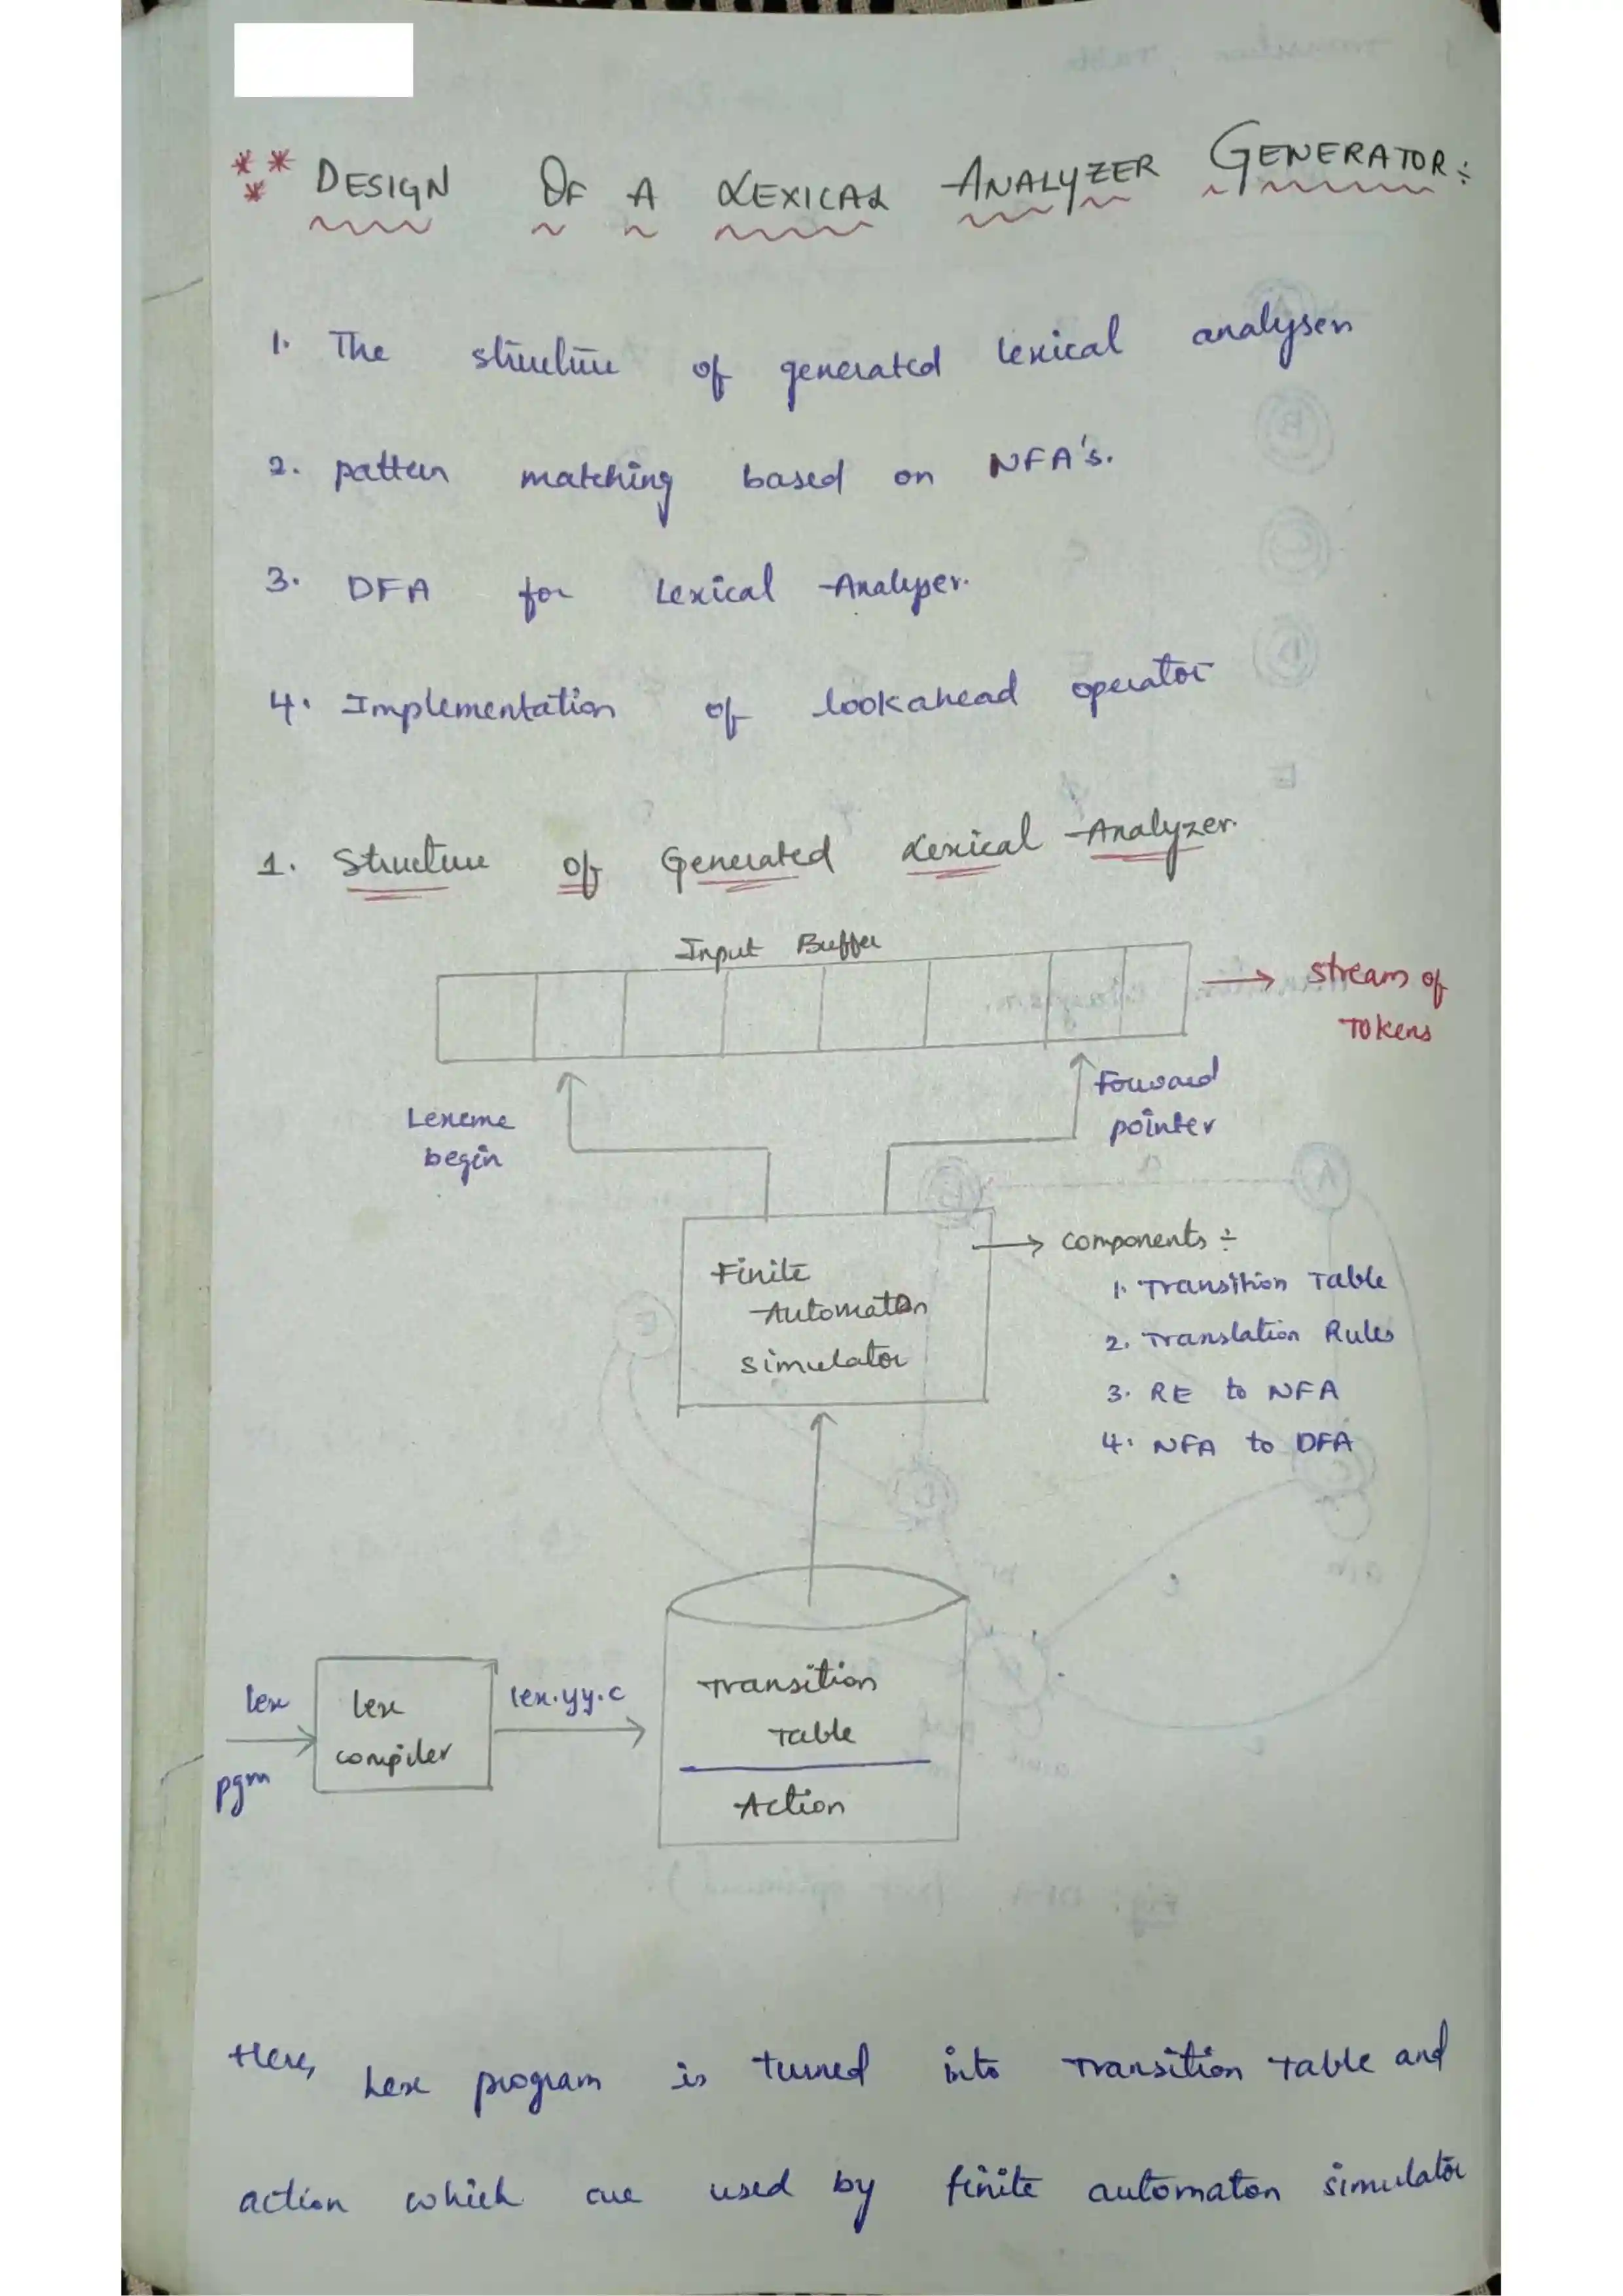 DESIGN OF A LEXICAL ANALYZER GENERATOR:
1. The structure of generated lexical analyser
2. pattern matching based on NFA's.
3. DFA for Lexical Analyser.
4. Implementation of lookahead operator
1. Structure of Generated Lexical Analyzer.
Input Buffer
→ stream of
Tokens
Lexeme
begin
Forward
pointer
Finite
Automaton
simulator
→ components :
1. Transition Table
2. Translation Rules
3. RE to NFA
4. NFA to DFA
lex
pgm
lex
compiler
lex.yy.c
Transition
Table
Action
Here, Lex program is turned into Transition Table and
action which are used by finite automaton simulator